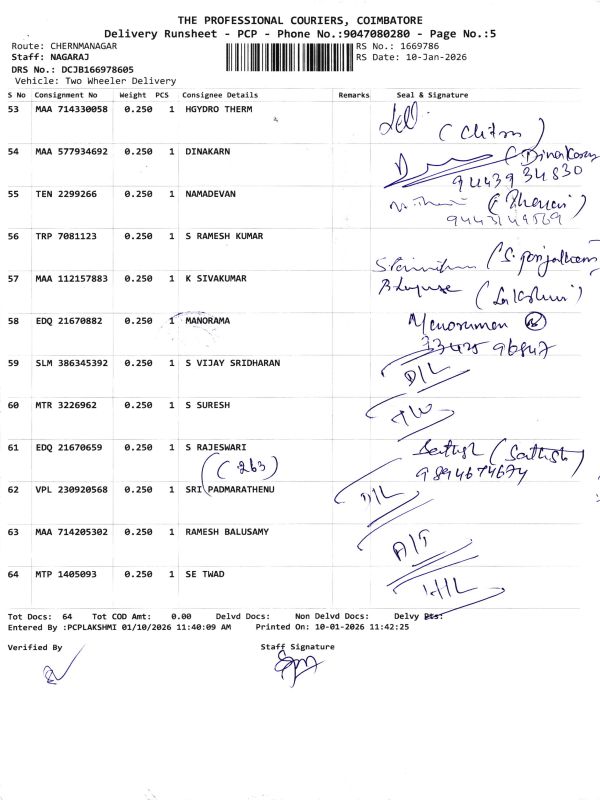 THE PROFESSIONAL COURIERS, COIMBATORE
Delivery Runsheet - PCP - Phone No.:9047080280 - Page No.:5
Route: CHERNMANAGAR RS No.: 1669786
Staff: NAGARAJ RS Date: 10-Jan-2026
DRS No.: DCJB166978605
Vehicle: Two Wheeler Delivery
S No Consignment No Weight PCS Consignee Details Remarks Seal & Signature
53 MAA 714330058 0.250 1 HGYDRO THERM
54 MAA 577934692 0.250 1 DINAKARN (Dinakaran
94439 34830
55 TEN 2299266 0.250 1 NAMADEVAN
56 TRP 7081123 0.250 1 S RAMESH KUMAR
57 MAA 112157883 0.250 1 K SIVAKUMAR (Lakshmi)
58 EDQ 21670882 0.250 1 MANORAMA
59 SLM 386345392 0.250 1 S VIJAY SRIDHARAN D/L
60 MTR 3226962 0.250 1 S SURESH
61 EDQ 21670659 0.250 1 S RAJESWARI Sathish (Sathish)
(263) 9894674674
62 VPL 230920568 0.250 1 SRI PADMARATHENU D/L
63 MAA 714205302 0.250 1 RAMESH BALUSAMY A/T
64 MTP 1405093 0.250 1 SE TWAD
Tot Docs: 64 Tot COD Amt: 0.00 Delvd Docs: Non Delvd Docs: Delvy Pts:
Entered By :PCPLAKSHMI 01/10/2026 11:40:09 AM Printed On: 10-01-2026 11:42:25
Verified By Staff Signature